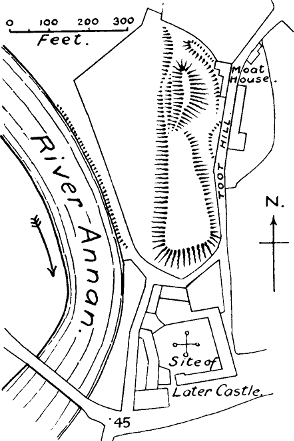 0 100 200 300
Feet.
Moat
House.
TOOT HILL
River Annan.
N.
Site of
Later Castle.
45